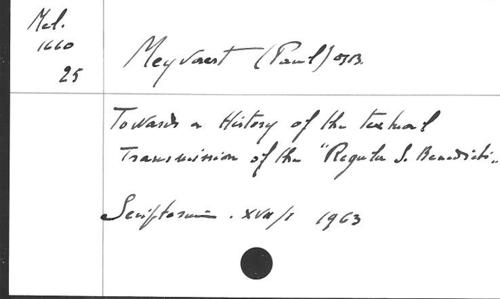 Mel.
1660
25
Meyvaert (Paul) OSB.
Towards a History of the textual
Transmission of the "Regula S. Benedicti"
Scriptorium. XVII/I 1963